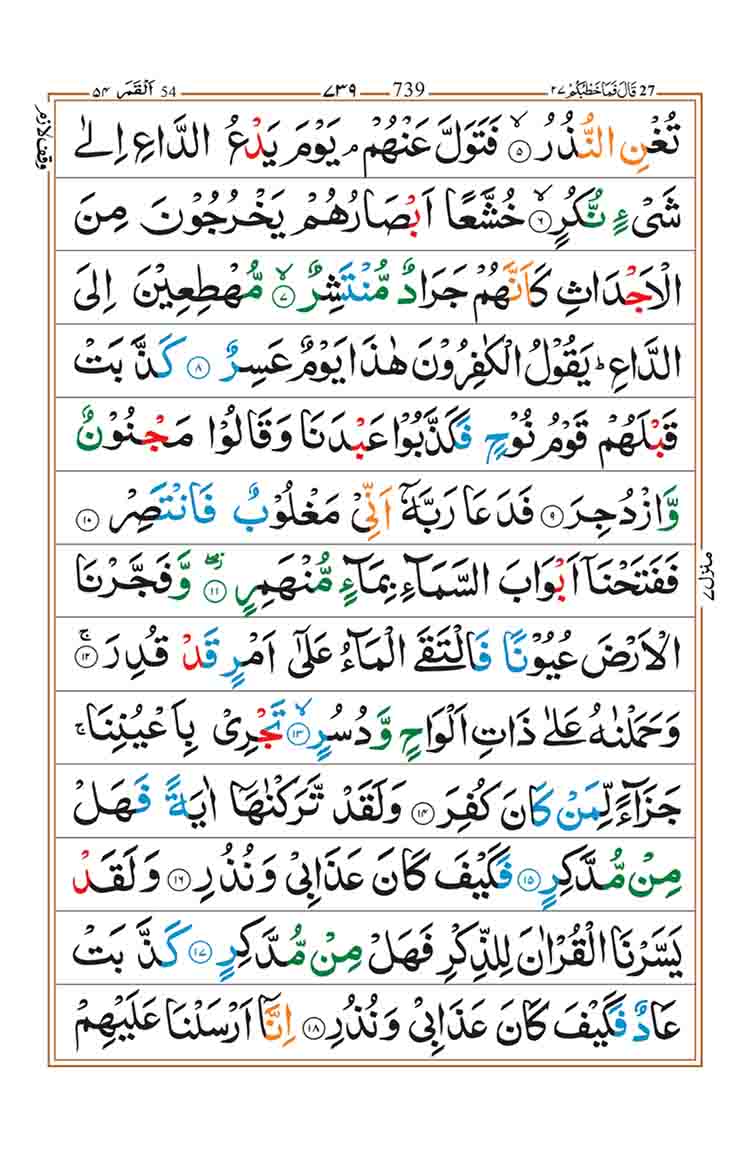 27 قَالَ فَمَا خَطْبُكُمْ ٢٧ 739 ٧٣٩ 54 اَلْقَمَر ٥٤
وقف لازم
تُغْنِ النُّذُرُ ۙ‏ ٥ فَتَوَلَّ عَنْهُمْ ۘ يَوْمَ يَدْعُ الدَّاعِ اِلٰى
شَىْءٍ نُّكُرٍ ۙ‏ ٦ خُشَّعًا اَبْصَارُهُمْ يَخْرُجُوْنَ مِنَ
الْاَجْدَاثِ كَاَنَّهُمْ جَرَادٌ مُّنْتَشِرٌ ۙ‏ ٧ مُّهْطِعِيْنَ اِلَى
الدَّاعِ ؕ يَقُوْلُ الْكٰفِرُوْنَ هٰذَا يَوْمٌ عَسِرٌ ٨ كَذَّبَتْ
قَبْلَهُمْ قَوْمُ نُوْحٍ فَكَذَّبُوْا عَبْدَنَا وَقَالُوْا مَجْنُوْنٌ
وَّازْدُجِرَ ٩ فَدَعَا رَبَّهٗۤ اَنِّىْ مَغْلُوْبٌ فَانْتَصِرْ ١٠
فَفَتَحْنَاۤ اَبْوَابَ السَّمَآءِ بِمَآءٍ مُّنْهَمِرٍ ۖ ١١ وَّفَجَّرْنَا
الْاَرْضَ عُيُوْنًا فَالْتَقَى الْمَآءُ عَلٰٓى اَمْرٍ قَدْ قُدِرَ ۚ ١٢
وَحَمَلْنٰهُ عَلٰى ذَاتِ اَلْوَاحٍ وَّدُسُرٍ ۙ ١٣ تَجْرِىْ بِاَعْيُنِنَا ۚ
جَزَآءً لِّمَنْ كَانَ كُفِرَ ١٤ وَلَقَدْ تَّرَكْنٰهَاۤ اٰيَةً فَهَلْ
مِنْ مُّدَّكِرٍ ١٥ فَكَيْفَ كَانَ عَذَابِىْ وَنُذُرِ ١٦ وَلَقَدْ
يَسَّرْنَا الْقُرْاٰنَ لِلذِّكْرِ فَهَلْ مِنْ مُّدَّكِرٍ ١٧ كَذَّبَتْ
عَادٌ فَكَيْفَ كَانَ عَذَابِىْ وَنُذُرِ ١٨ اِنَّاۤ اَرْسَلْنَا عَلَيْهِمْ
منزل ٧